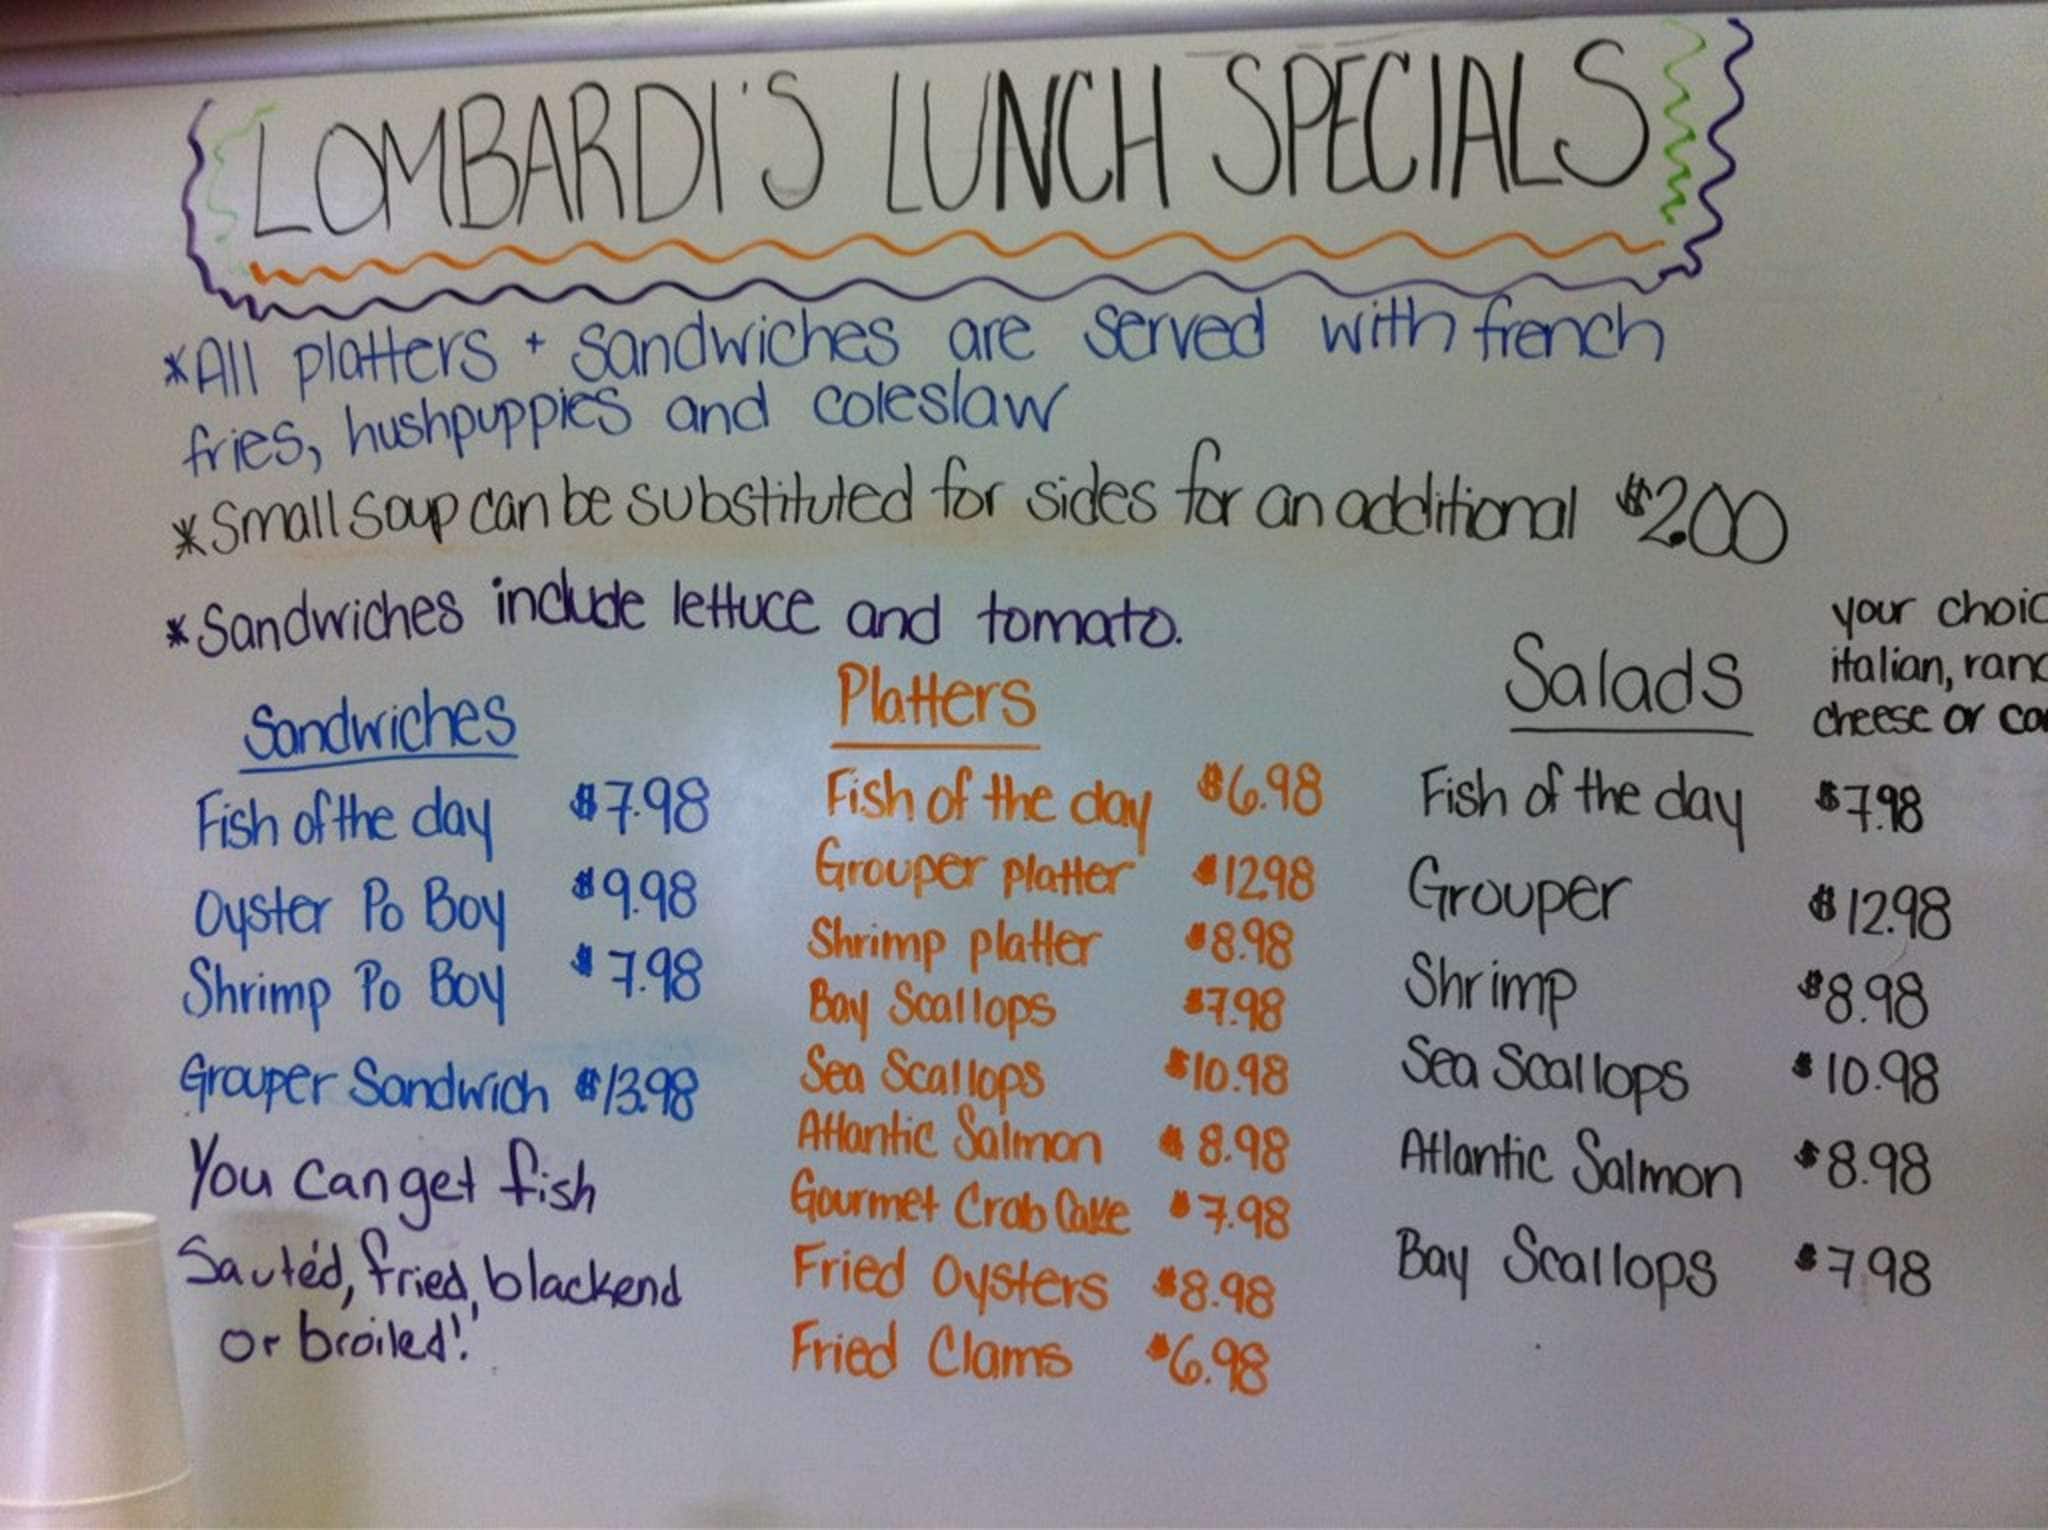 LOMBARDI'S LUNCH SPECIALS
*All platters + sandwiches are served with french
fries, hushpuppies and coleslaw
*Small soup can be substituted for sides for an additional $2.00
*Sandwiches include lettuce and tomato.
Sandwiches
Fish of the day $7.98
Oyster Po Boy $9.98
Shrimp Po Boy $7.98
Grouper Sandwich $13.98
You can get fish
Sauté'd, fried, blackend
or broiled!
Platters
Fish of the day $6.98
Grouper platter $12.98
Shrimp platter $8.98
Bay Scallops $7.98
Sea Scallops $10.98
Atlantic Salmon $8.98
Gourmet Crab Cake $7.98
Fried Oysters $8.98
Fried Clams $6.98
Salads
your
italian,
cheese or
Fish of the day $7.98
Grouper $12.98
Shrimp $8.98
Sea Scallops $10.98
Atlantic Salmon $8.98
Bay Scallops $7.98